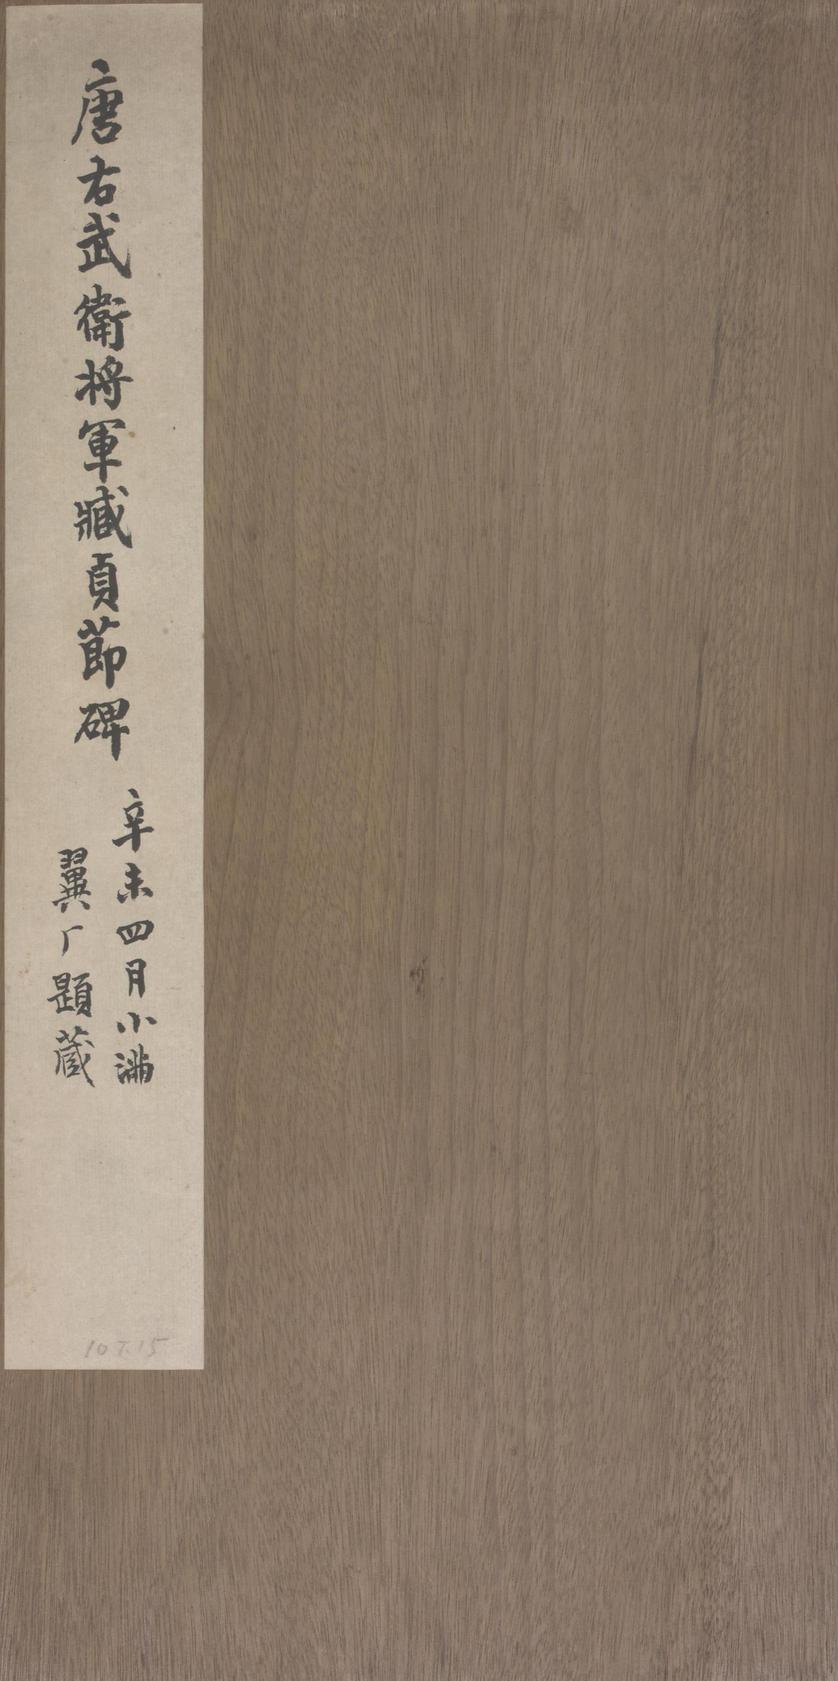 唐右武衛将軍臧貞節碑
辛未四月小满
翼厂題藏
10T.15